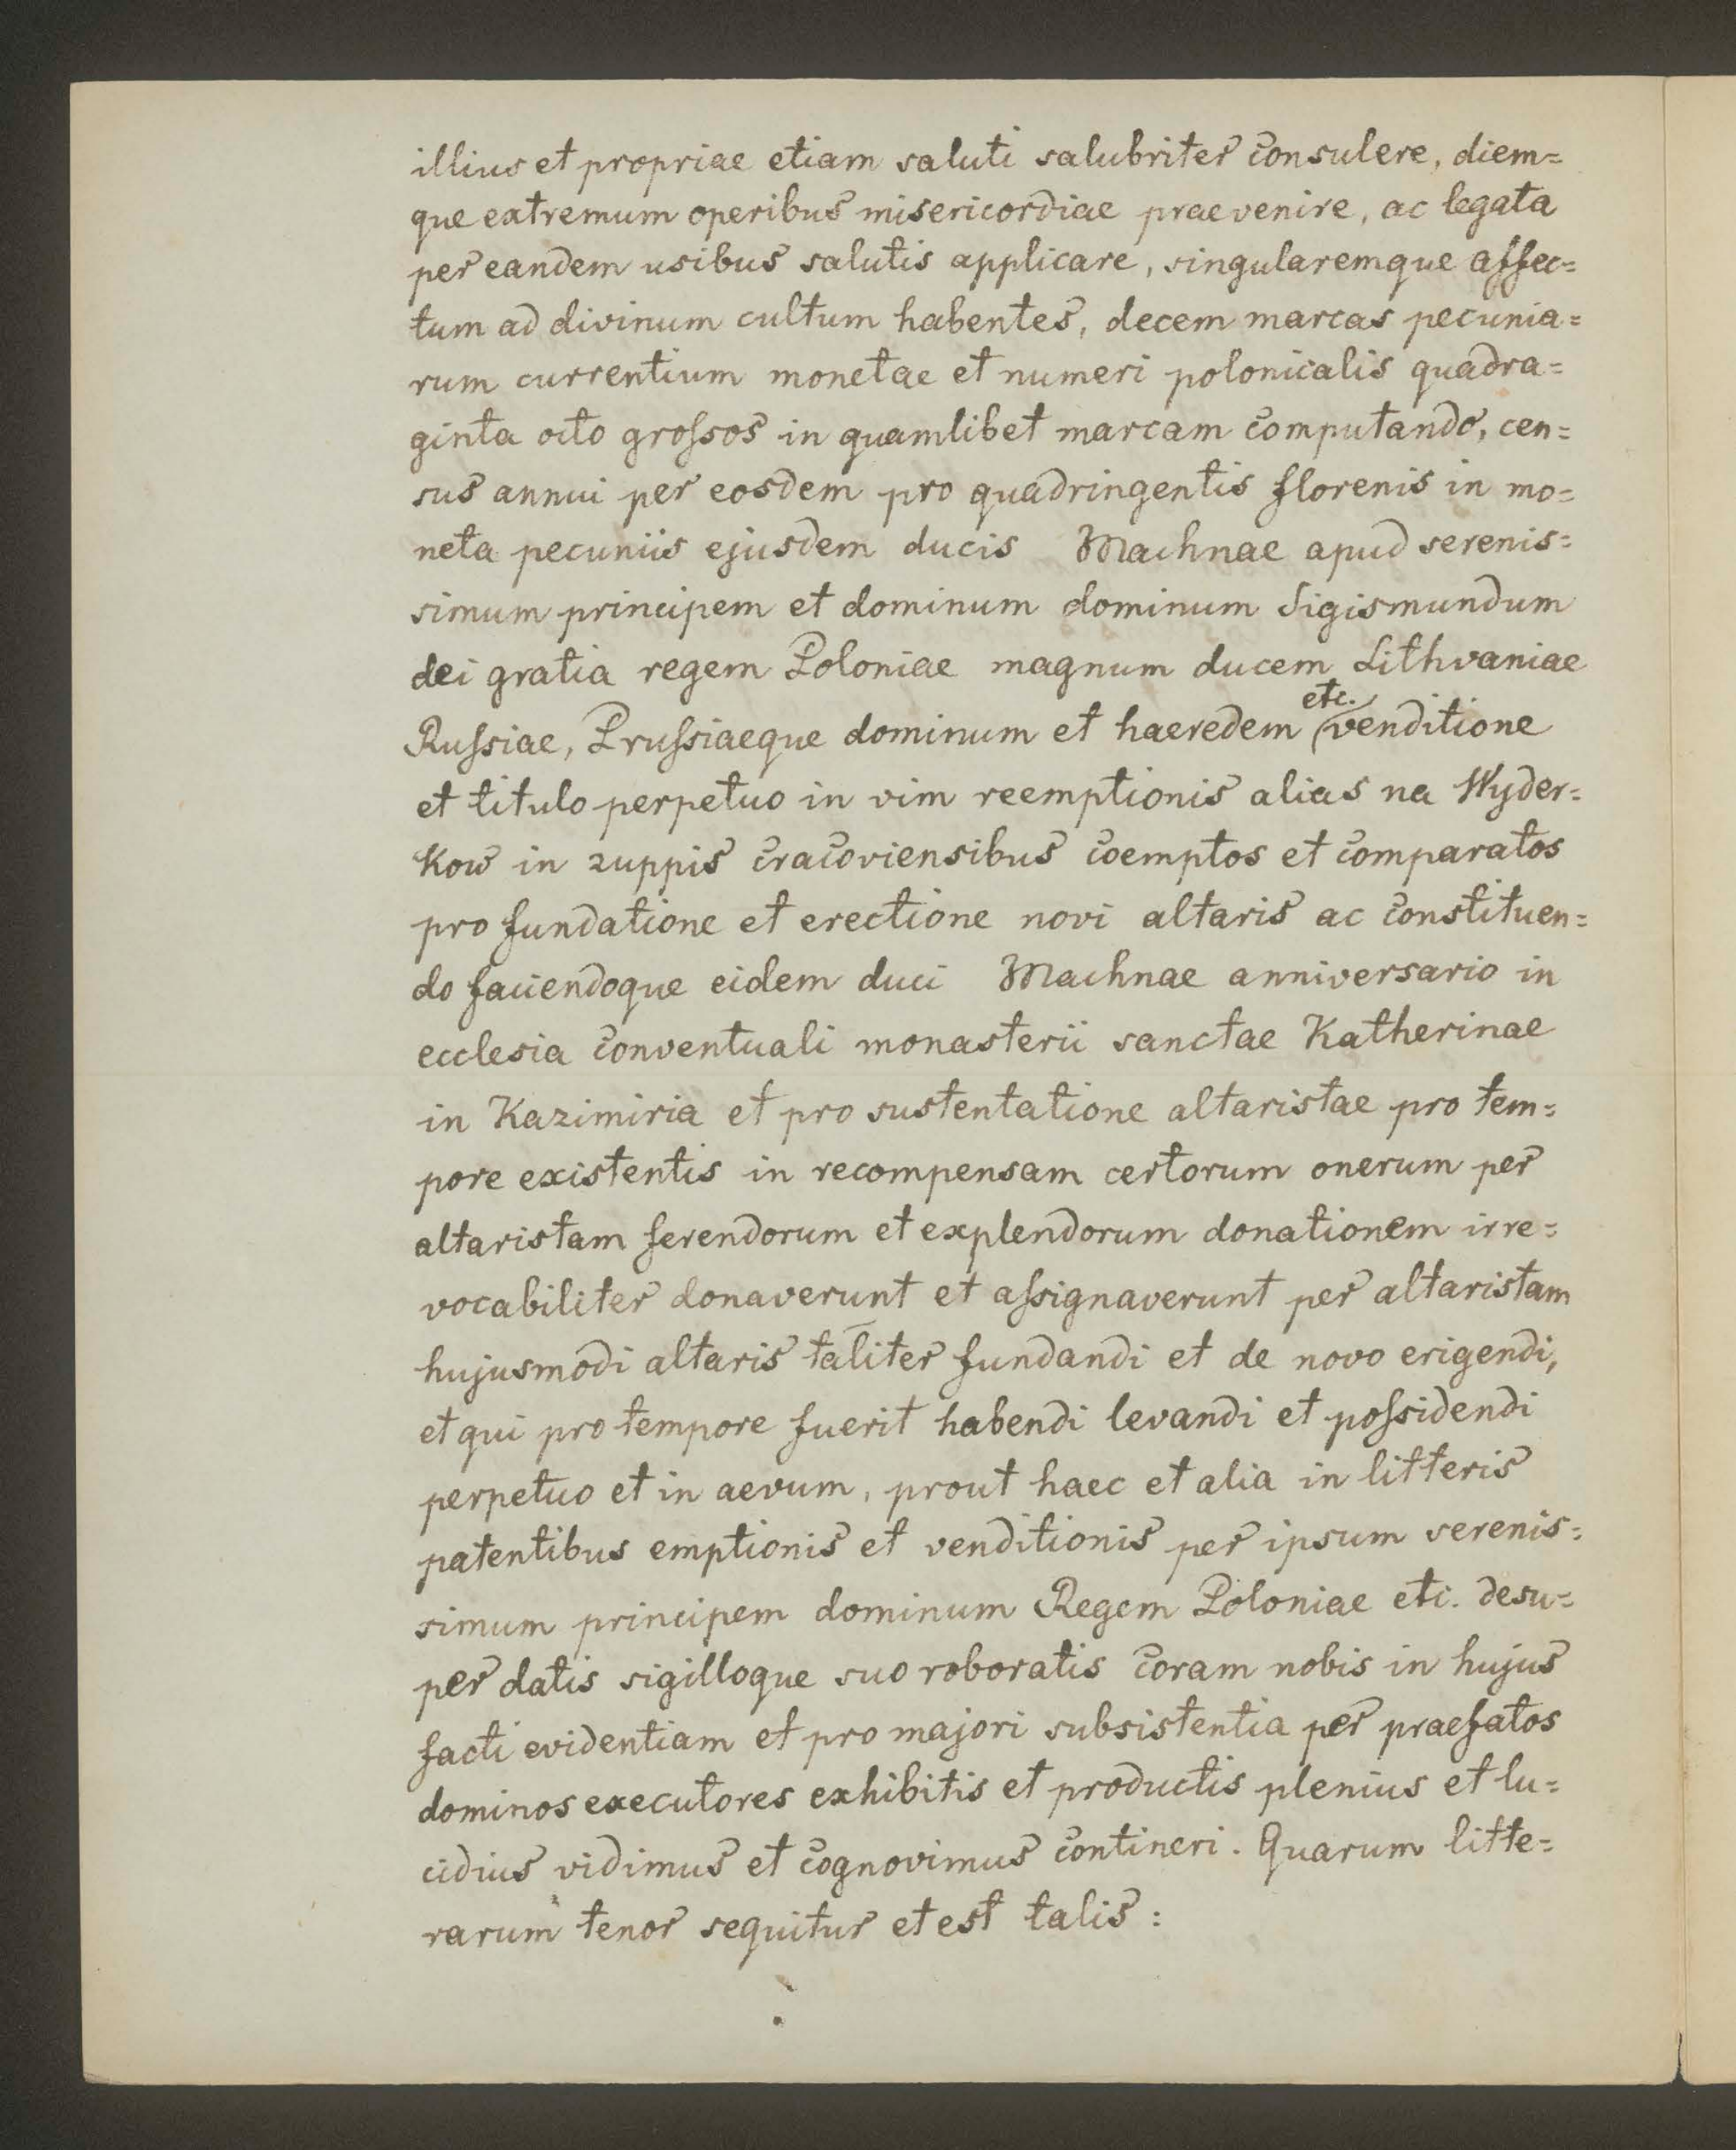 illius et propriae etiam saluti salubriter consulere, diem=
que extremum operibus misericordiae praevenire, ac legata
per eandem usibus salutis applicare, singularemque affec=
tum ad divinum cultum habentes, decem marcas pecunia=
rum currentium monetae et numeri polonicalis quadra=
ginta octo grossos in quamlibet marcam computando, cen=
sus annui per eosdem pro quadringentis florenis in mo=
neta pecuniis ejusdem ducis Machnae apud serenis=
simum principem et dominum dominum Sigismundum
dei gratia regem Poloniae magnum ducem Lithvaniae
Russiae, Prussiaeque dominum et haeredem etc. venditione
et titulo perpetuo in vim reemptionis alias na Wyder=
kow in zuppis cracoviensibus coemptos et comparatos
pro fundatione et erectione novi altaris ac constituen=
do faciendoque eidem duci Machnae anniversario in
ecclesia conventuali monasterii sanctae Katherinae
in Kazimiria et pro sustentatione altaristae pro tem=
pore existentis in recompensam certorum onerum per
altaristam ferendorum et explendorum donationem irre=
vocabiliter donaverunt et assignaverunt per altaristam
hujusmodi altaris taliter fundandi et de novo erigendi,
et qui pro tempore fuerit habendi levandi et possidendi
perpetuo et in aevum, prout haec et alia in litteris
patentibus emptionis et venditionis per ipsum serenis=
simum principem dominum Regem Poloniae etc. desu=
per datis sigilloque suo roboratis coram nobis in hujus
facti evidentiam et pro majori subsistentia per praefatos
dominos executores exhibitis et productis plenius et lu=
cidius vidimus et cognovimus contineri. Quarum litte=
rarum tenor sequitur et est talis: